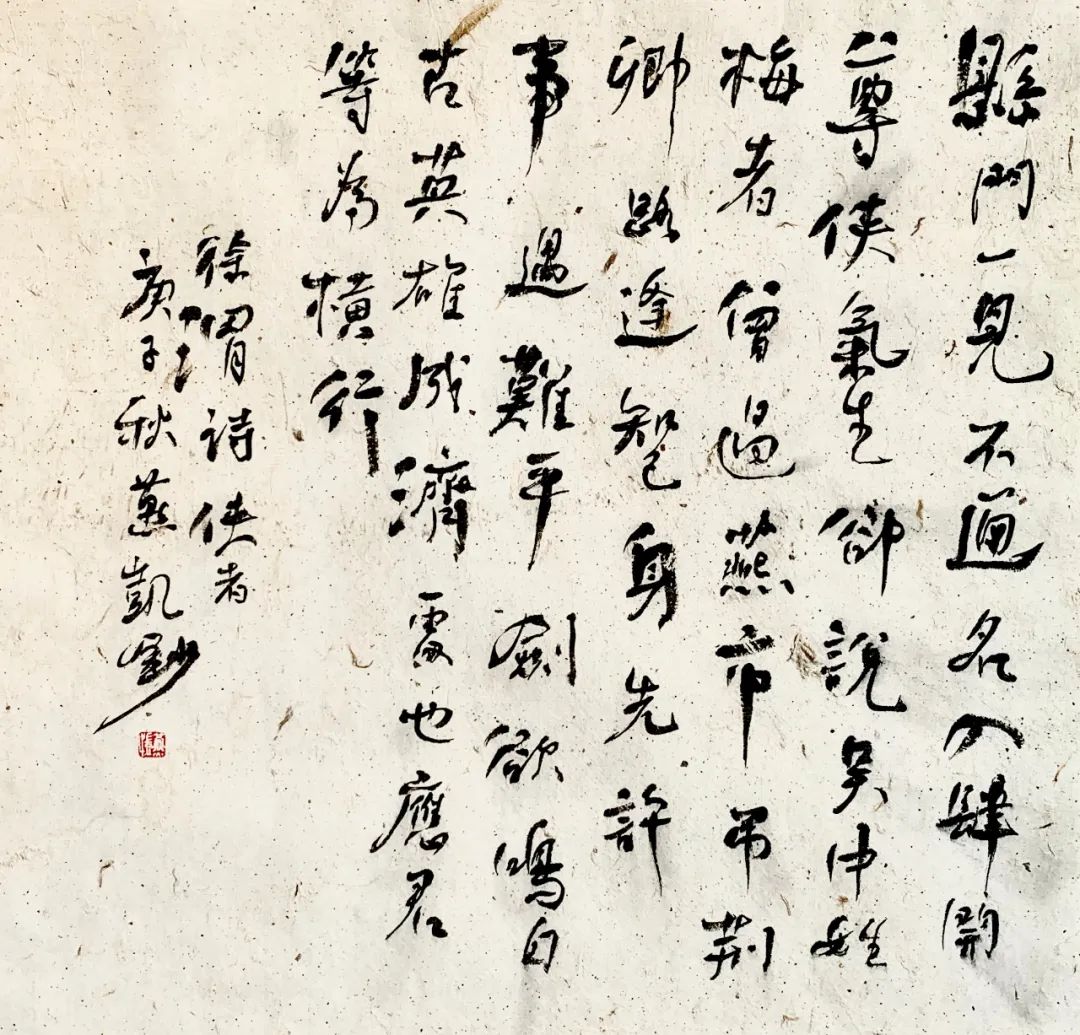 縣門一見不通名入肆開
尊俠氣生卻說吳中姓
梅者曾過燕市吊荊
卿路逢知己身先許
事遇難平劍欲鳴自
古英雄成濟處也應君
等為橫行
徐渭詩俠者
庚子秋燕凱鈔